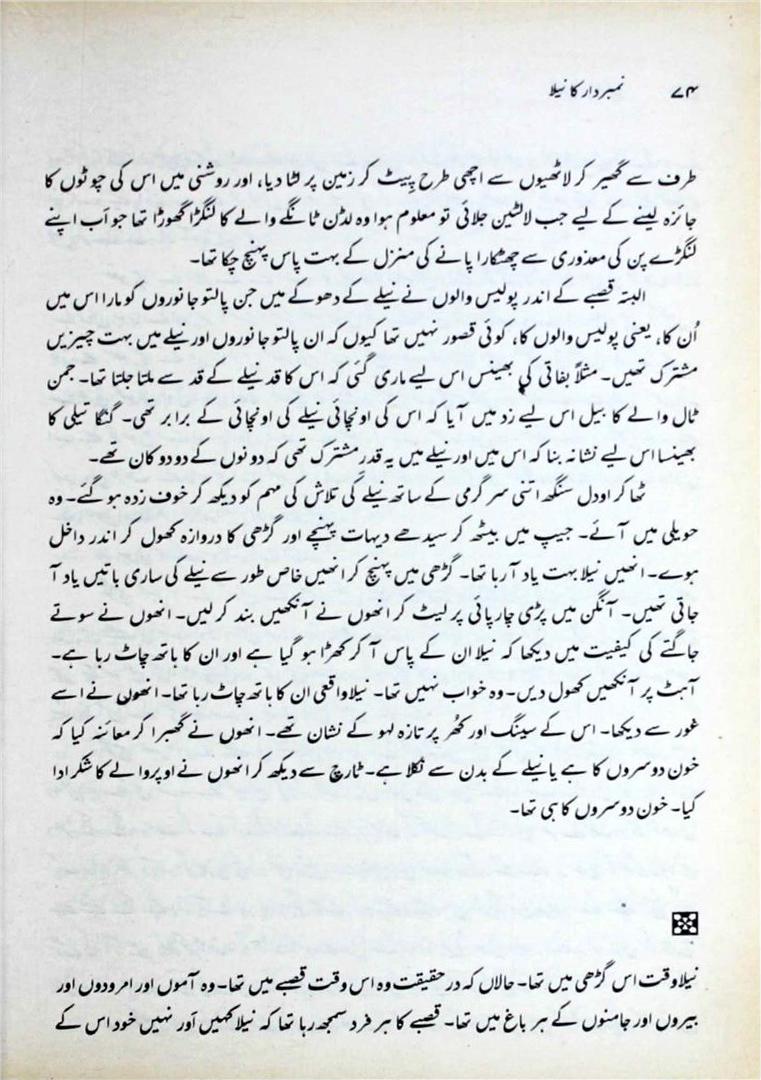 ۷۴ نمبردار کا نیلا
طرف سے گھیر کر لاٹھیوں سے اچھی طرح پیٹ کر زمین پر لٹا دیا، اور روشنی میں اس کی چوٹوں کا
جائزہ لینے کے لیے جب لالٹین جلائی تو معلوم ہوا وہ لڈن ٹانگے والے کا لنگڑا گھوڑا تھا جو اَب اپنے
لنگڑے پن کی معذوری سے چھٹکارا پانے کی منزل کے بہت پاس پہنچ چکا تھا۔
البتہ قصبے کے اندر پولیس والوں نے نیلے کے دھوکے میں جن پالتو جانوروں کو مارا اس میں
اُن کا، یعنی پولیس والوں کا، کوئی قصور نہیں تھا کیوں کہ ان پالتو جانوروں اور نیلے میں بہت چیزیں
مشترک تھیں۔ مثلاً بفاتی کی بھینس اس لیے ماری گئی کہ اس کا قد نیلے کے قد سے ملتا جلتا تھا۔ جمن
ٹال والے کا بیل اس لیے زد میں آیا کہ اس کی اونچائی نیلے کی اونچائی کے برابر تھی۔ گنگا تیلی کا
بھینسا اس لیے نشانہ بنا کہ اس میں اور نیلے میں یہ قدرِ مشترک تھی کہ دونوں کے دو دو کان تھے۔
ٹھاکر اودل سنگھ اتنی سرگرمی کے ساتھ نیلے کی تلاش کی مہم کو دیکھ کر خوف زدہ ہو گئے۔ وہ
حویلی میں آئے۔ جیپ میں بیٹھ کر سیدھے دیہات پہنچے اور گڑھی کا دروازہ کھول کر اندر داخل
ہوے۔ انھیں نیلا بہت یاد آ رہا تھا۔ گڑھی میں پہنچ کر انھیں خاص طور سے نیلے کی ساری باتیں یاد آ
جاتی تھیں۔ آنگن میں پڑی چارپائی پر لیٹ کر انھوں نے آنکھیں بند کر لیں۔ انھوں نے سوتے
جاگتے کی کیفیت میں دیکھا کہ نیلا ان کے پاس آ کر کھڑا ہو گیا ہے اور ان کا ہاتھ چاٹ رہا ہے۔
آہٹ پر آنکھیں کھول دیں۔ وہ خواب نہیں تھا۔ نیلا واقعی ان کا ہاتھ چاٹ رہا تھا۔ انھوں نے اسے
غور سے دیکھا۔ اس کے سینگ اور کُھر پر تازہ لہو کے نشان تھے۔ انھوں نے گھبرا کر معائنہ کیا کہ
خون دوسروں کا ہے یا نیلے کے بدن سے نکلا ہے۔ ٹارچ سے دیکھ کر انھوں نے اوپر والے کا شکر ادا
کیا۔ خون دوسروں کا ہی تھا۔
نیلا وقت اس گڑھی میں تھا۔ حالاں کہ در حقیقت وہ اس وقت قصبے میں تھا۔ وہ آموں اور امرودوں اور
بیروں اور جامنوں کے ہر باغ میں تھا۔ قصبے کا ہر فرد سمجھ رہا تھا کہ نیلا کہیں اَور نہیں خود اس کے